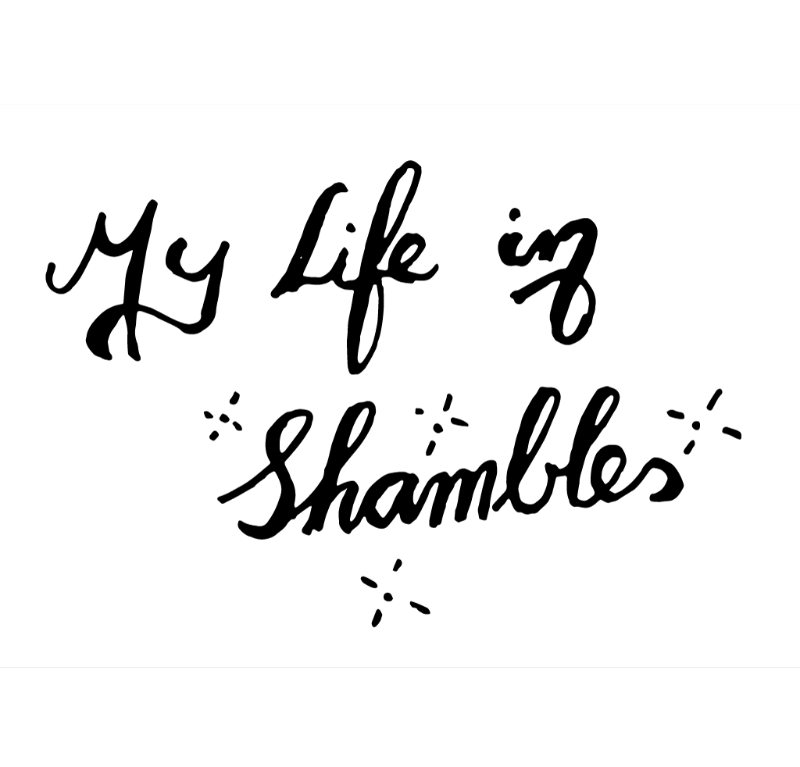 My Life in
Shambles